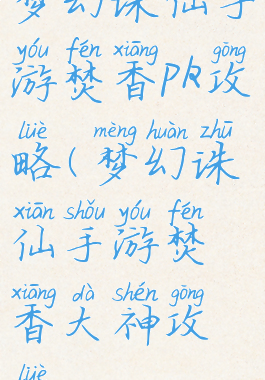 梦幻诛仙手
yóu fén xiāng gōng
游焚香PK攻
lüè mèng huàn zhū
略(梦幻诛
xiān shǒu yóu fén
仙手游焚
xiāng dà shén gōng
香大神攻
lüè